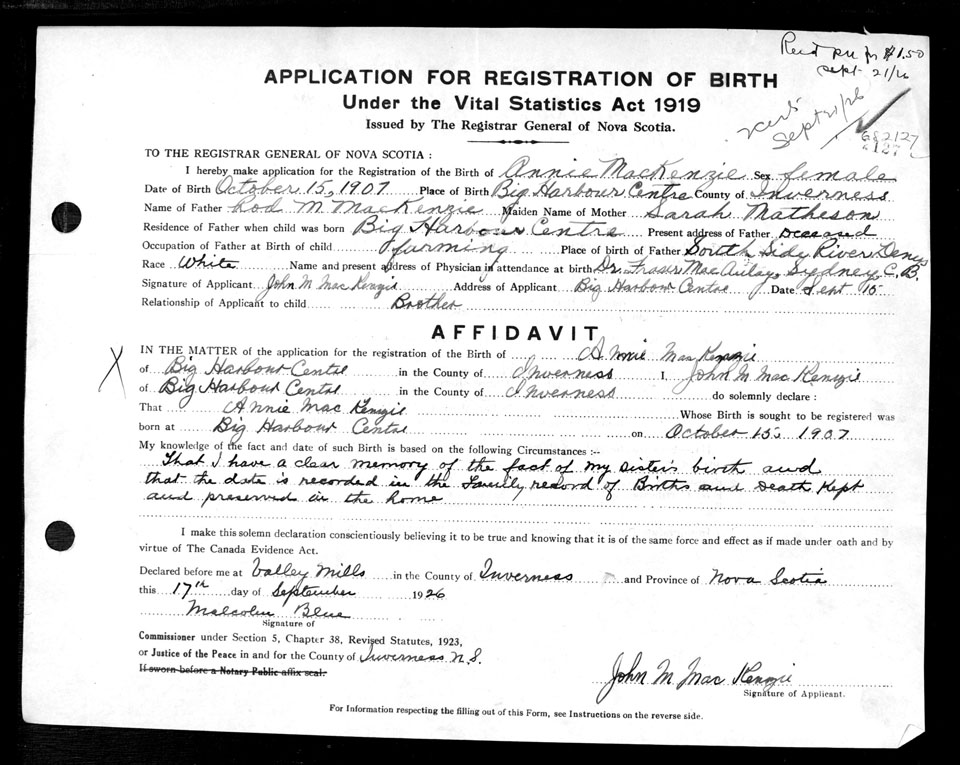 Rec'd pn for $1.50
Sept 21/26
APPLICATION FOR REGISTRATION OF BIRTH
Under the Vital Statistics Act 1919
Issued by The Registrar General of Nova Scotia.
Sept 21/26
682127
2127
TO THE REGISTRAR GENERAL OF NOVA SCOTIA :
I hereby make application for the Registration of the Birth of Annie MacKenzie Sex female
Date of Birth October 15, 1907 Place of Birth Big Harbour Centre County of Inverness
Name of Father Rod M. MacKenzie Maiden Name of Mother Sarah Matheson
Residence of Father when child was born Big Harbour Centre Present address of Father Deceased
Occupation of Father at Birth of child farming Place of birth of Father South Side River Denys
Race White Name and present address of Physician in attendance at birth Dr. Fraser MacAulay, Sydney, C.B.
Signature of Applicant John M Mac Kenzie Address of Applicant Big Harbour Centre Date Sept 15
Relationship of Applicant to child Brother
AFFIDAVIT
X
IN THE MATTER of the application for the registration of the Birth of Annie Mac Kenzie
of Big Harbour Centre in the County of Inverness I, John M Mac Kenzie
of Big Harbour Centre in the County of Inverness do solemnly declare :
That Annie Mac Kenzie Whose Birth is sought to be registered was
born at Big Harbour Centre on October 15, 1907
My knowledge of the fact and date of such Birth is based on the following Circumstances :--
That I have a clear memory of the fact of my sister's birth and
that the date is recorded in the Family record of Births and Death kept
and preserved in the home
I make this solemn declaration conscientiously believing it to be true and knowing that it is of the same force and effect as if made under oath and by
virtue of The Canada Evidence Act.
Declared before me at Valley Mills in the County of Inverness and Province of Nova Scotia
this 17th day of September 1926
Malcolm Blue
Signature of
Commissioner under Section 5, Chapter 38, Revised Statutes, 1923,
or Justice of the Peace in and for the County of Inverness N.S.
If sworn before a Notary Public affix seal.
John M Mac Kenzie
Signature of Applicant.
For Information respecting the filling out of this Form, see Instructions on the reverse side.